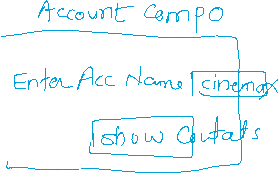 Account Compo
Enter Acc Name cinemax
show Contats